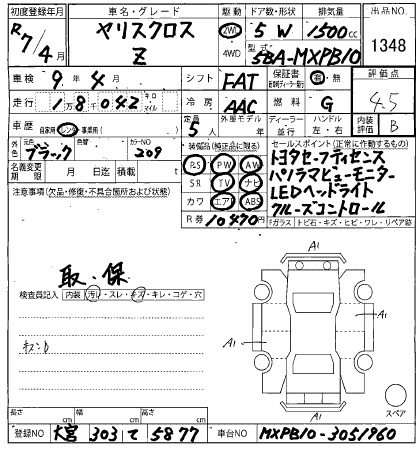 初度登録年月 車名・グレード 駆動 ドア数・形状 排気量 出品NO.
R7/4月 ヤリスクロス Z 2WD 4WD 5W 1500cc 1348
型式 5BA-MXPB10
車検 9年4月 シフト FAT 保証書 有・無 評価点
走行 18042 キロ・マイル 冷房 AAC 燃料 G 4.5
車歴 自家用 レンタ 事業用( ) 定員 5人 外歴モデル 年 ディーラー 並行 ハンドル 左・右 内装評価 B
外色 元色 ブラック 色替 カラーNO 209
名義変更期限 月 日迄 積載 t
注意事項(欠品・修復・不具合箇所および状態)
装備品(純正品に限る)
PS PW AW
SR TV ナビ
カワ エアB ABS
R券 10470円
セールスポイント(正常に作動するもの)
トヨタセーフティセンス
パノラマビューモニター
LEDヘッドライト
クルーズコントロール
Fガラス トビ石・キズ・ヒビ・ワレ・リペア跡
取・保
検査員記入 内装 汚れ・スレ・キズ・キレ・コゲ・穴
A1
A1
A1
A1
スペア
長さ cm 幅 cm 高さ cm
登録NO 大宮 303 て 5877 車台NO MXPB10-3051960